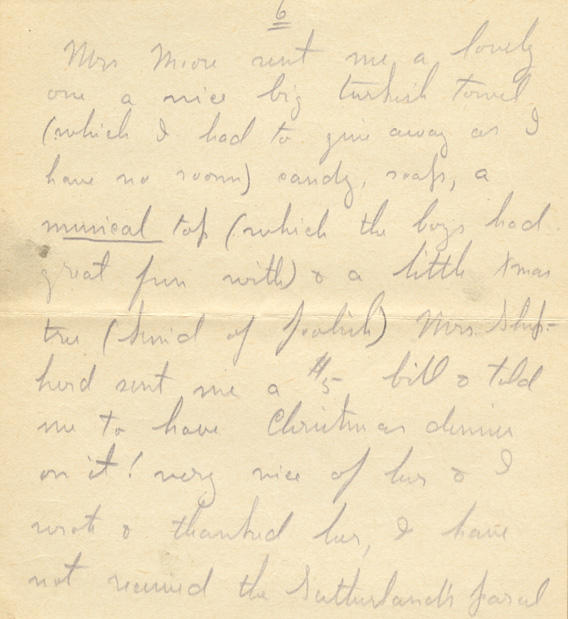 6
Mrs Moore sent me a lovely
one a nice big turkish towel
(which I had to give away as I
have no room) candy, soap, a
musical top (which the boys had
great fun with) & a little Xmas
tree (kind of foolish) Mrs. Shep-
herd sent me a $5 bill & told
me to have Christmas dinner
on it! very nice of her & I
wrote & thanked her, I have
not received the Sutherland's parcel